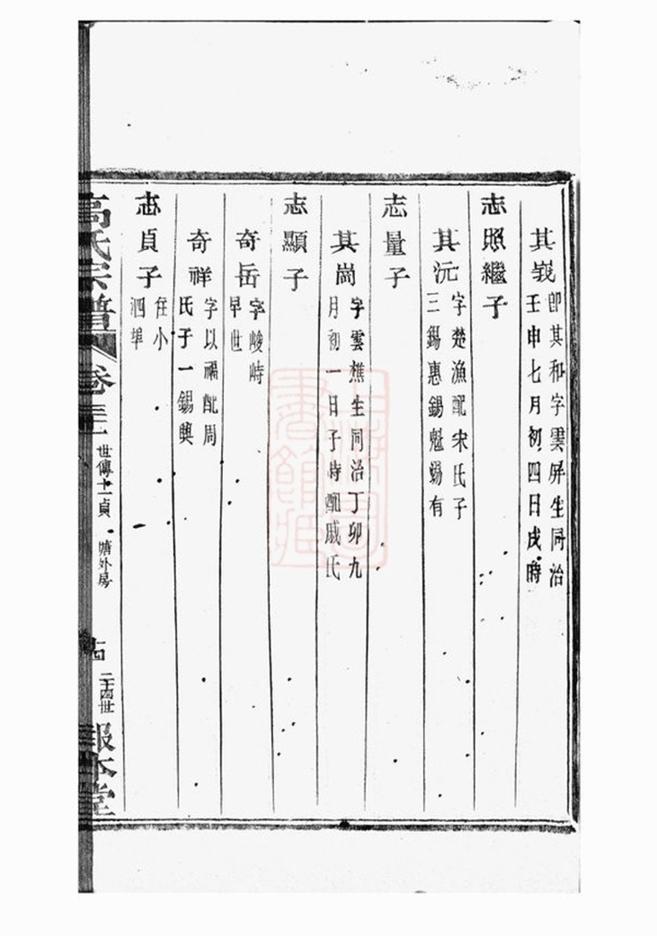 其嶷 即其和字雲屏生同治
壬申七月初四日戌時
志照繼子
其沅 字楚漁配宋氏子
三錫惠錫魁錫有
志量子
其崗 字雲樵生同治丁卯九
月初一日子時配戚氏
志顯子
奇岳 字峻峙
早世
奇祥 字以禑配周
氏子一錫興
志貞子 在小
泗埠
高氏宗譜 卷三十二 世傳十一貞 塘外房 十四 二十四世 報本堂